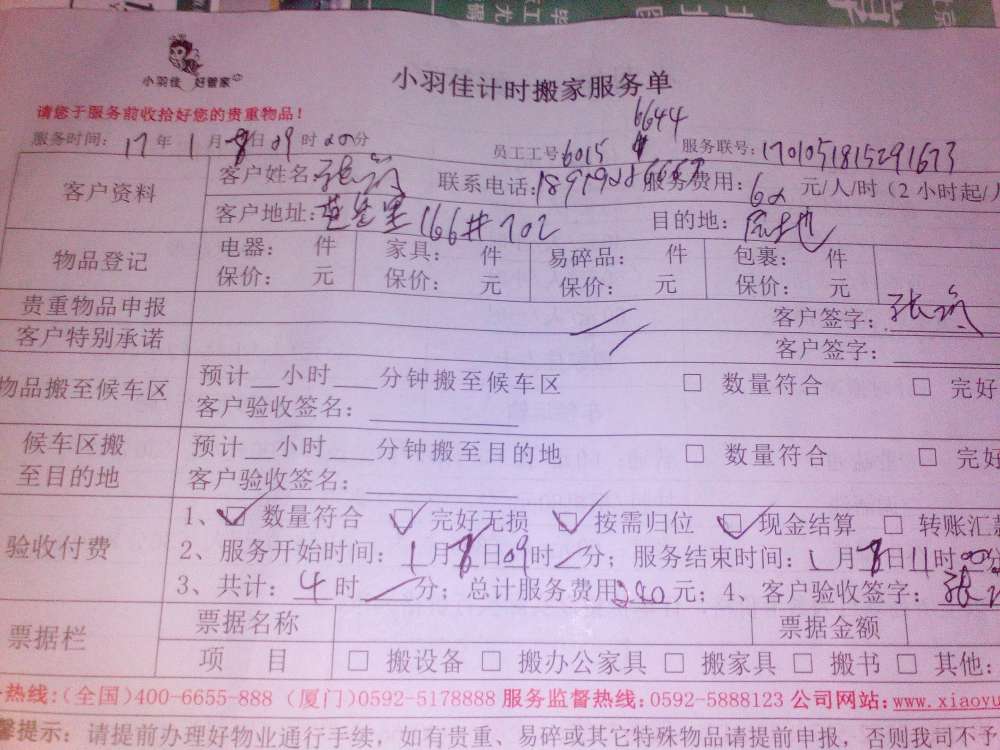 小羽佳 好管家
小羽佳计时搬家服务单
请您于服务前收拾好您的贵重物品!
服务时间: 17 年 1 月 8 日 09 时 00 分
员工工号 6015 6644 服务联号: 1701051815291673
客户资料
客户姓名: 张 联系电话: 服务费用: 60 元/人/时(2小时起/
客户地址: 166# 702 目的地:
物品登记
电器: 件 家具: 件 易碎品: 件 包裹: 件
保价: 元 保价: 元 保价: 元 保价: 元
贵重物品申报 客户签字: 张
客户特别承诺 客户签字:
物品搬至候车区
预计__小时___分钟搬至候车区 □ 数量符合 □ 完好
客户验收签名:
候车区搬至目的地
预计__小时___分钟搬至目的地 □ 数量符合 □ 完好
客户验收签名:
验收付费
1、☑ 数量符合 ☑ 完好无损 ☑ 按需归位 ☑ 现金结算 □ 转账汇款
2、服务开始时间: 1 月 8 日 09 时 / 分; 服务结束时间: 1 月 8 日 11 时 00 分
3、共计: 4 时 / 分; 总计服务费用 240 元; 4、客户验收签字: 张
票据栏
票据名称 票据金额
项 目 □ 搬设备 □ 搬办公家具 □ 搬家具 □ 搬书 □ 其他:
热线:(全国)400-6655-888 (厦门)0592-5178888 服务监督热线: 0592-5888123 公司网站: www.xiaoyu
馨提示: 请提前办理好物业通行手续, 如有贵重、易碎或其它特殊物品请提前申报, 否则我司不予